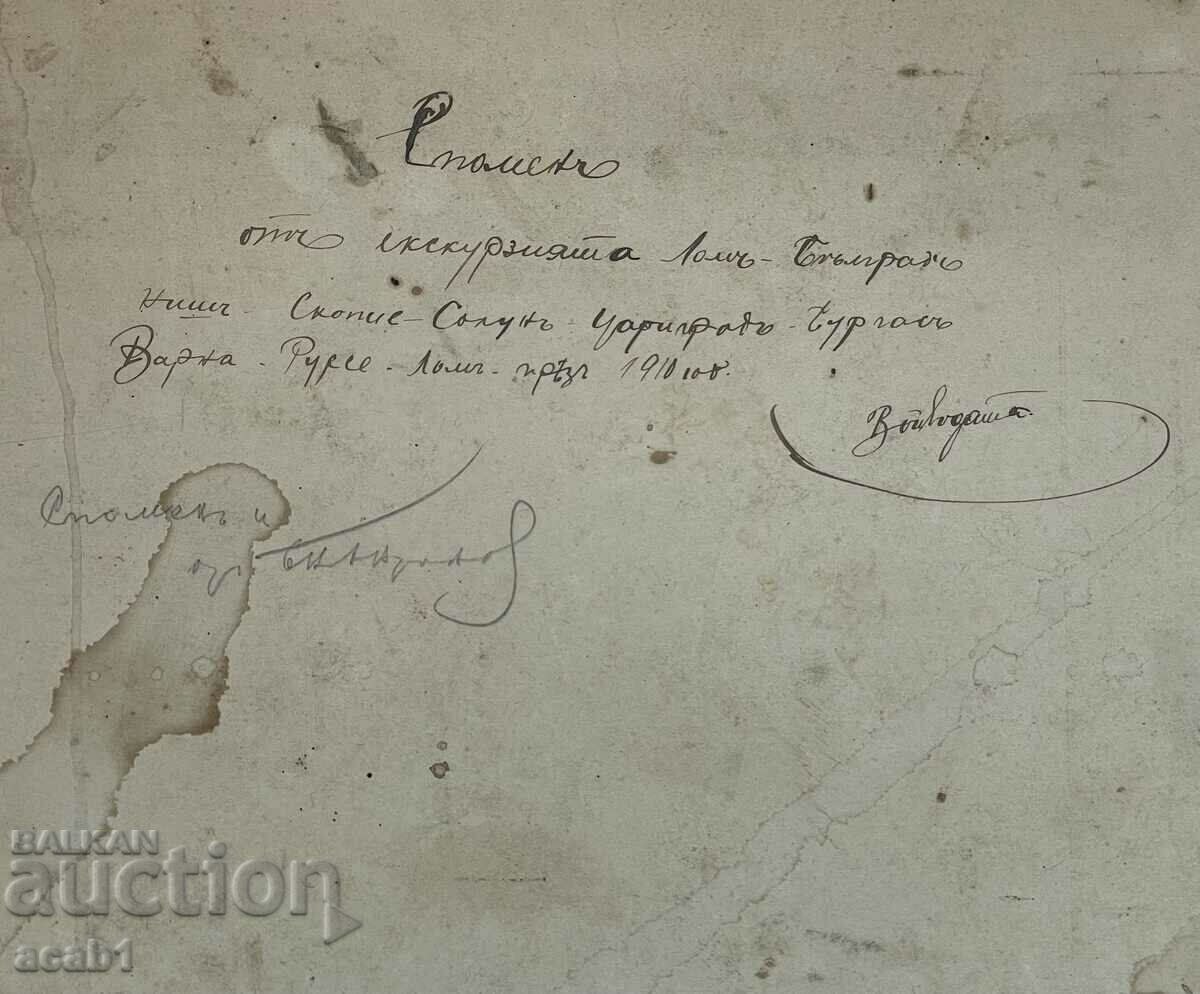 Споменъ
отъ екскурзията Ломъ - Бѣлградъ
Нишъ - Скопие - Солунъ - Цариградъ - Бургасъ
Варна - Руссе - Ломъ - прѣзъ 1910 год.
Войводата
Споменъ и
отъ
BALKAN
auction
acab1